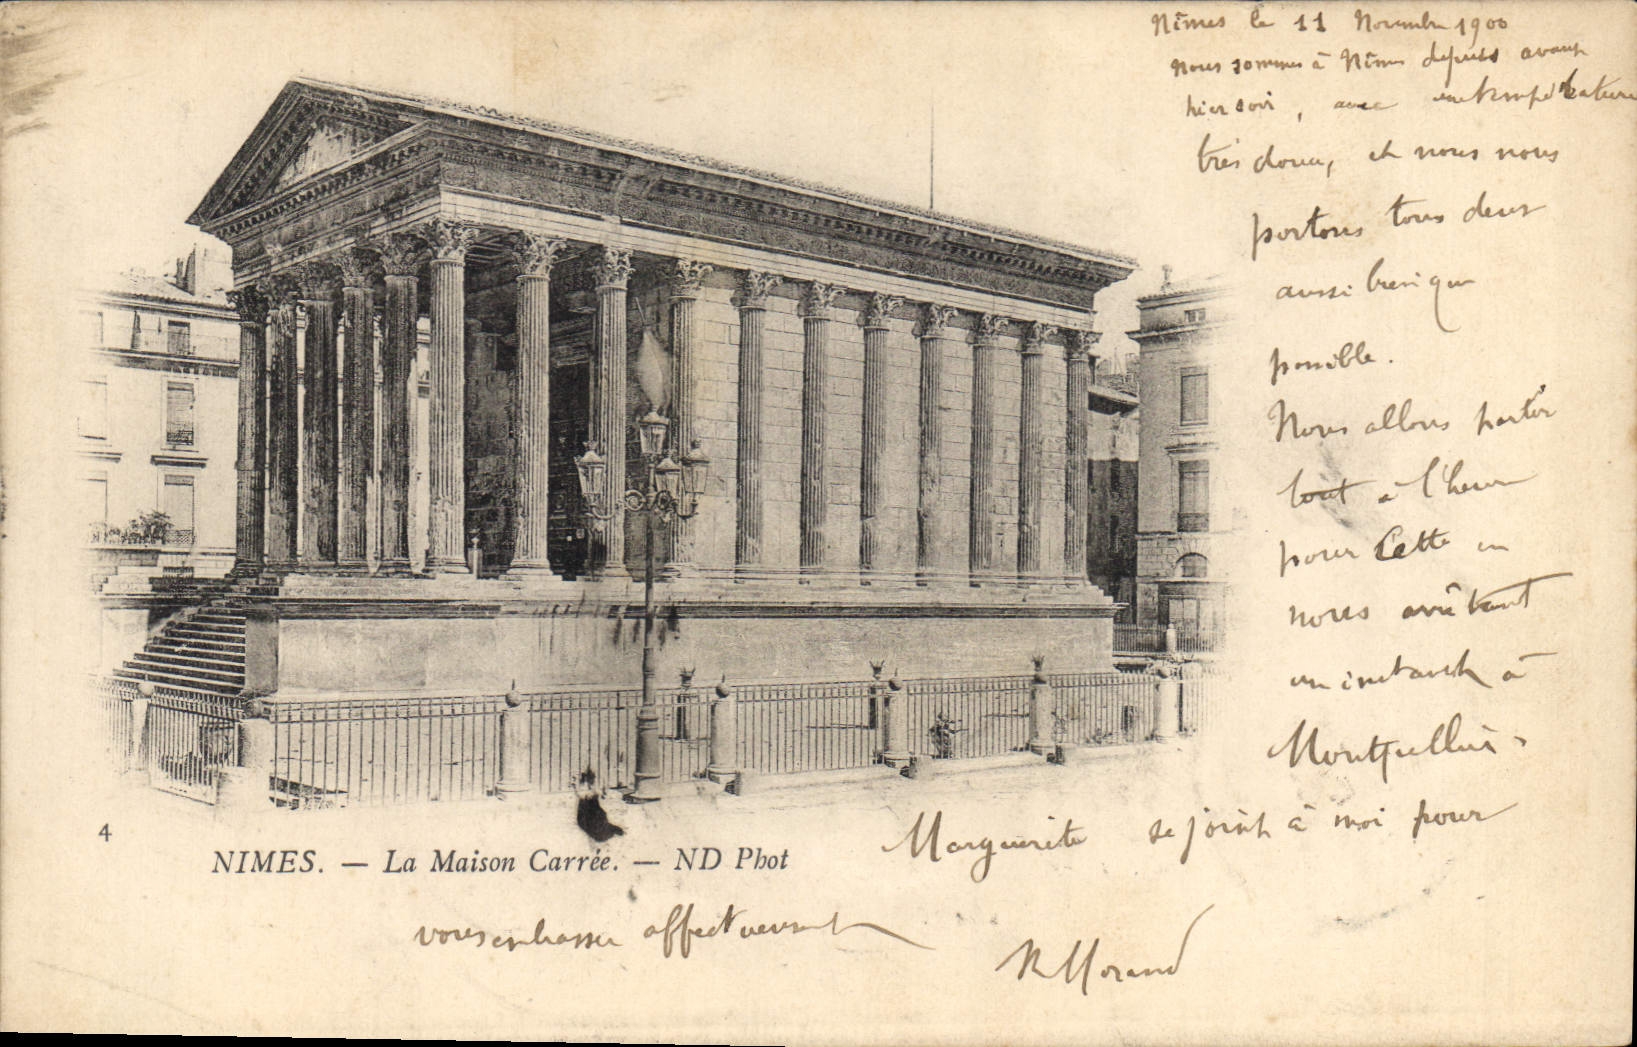 Nîmes le 11 Novembre 1900
nous sommes à Nîmes depuis avant
hier soir, avec une température
très douce, et nous nous
portons tous deux
aussi bien que
possible.
Nous allons partir
tout à l'heure
pour Cette en
nous arrêtant
un instant à
Montpellier.
Marguerite se joint à moi pour
vous embrasser affectueusement
R Morand
4
NIMES. — La Maison Carrée. — ND Phot